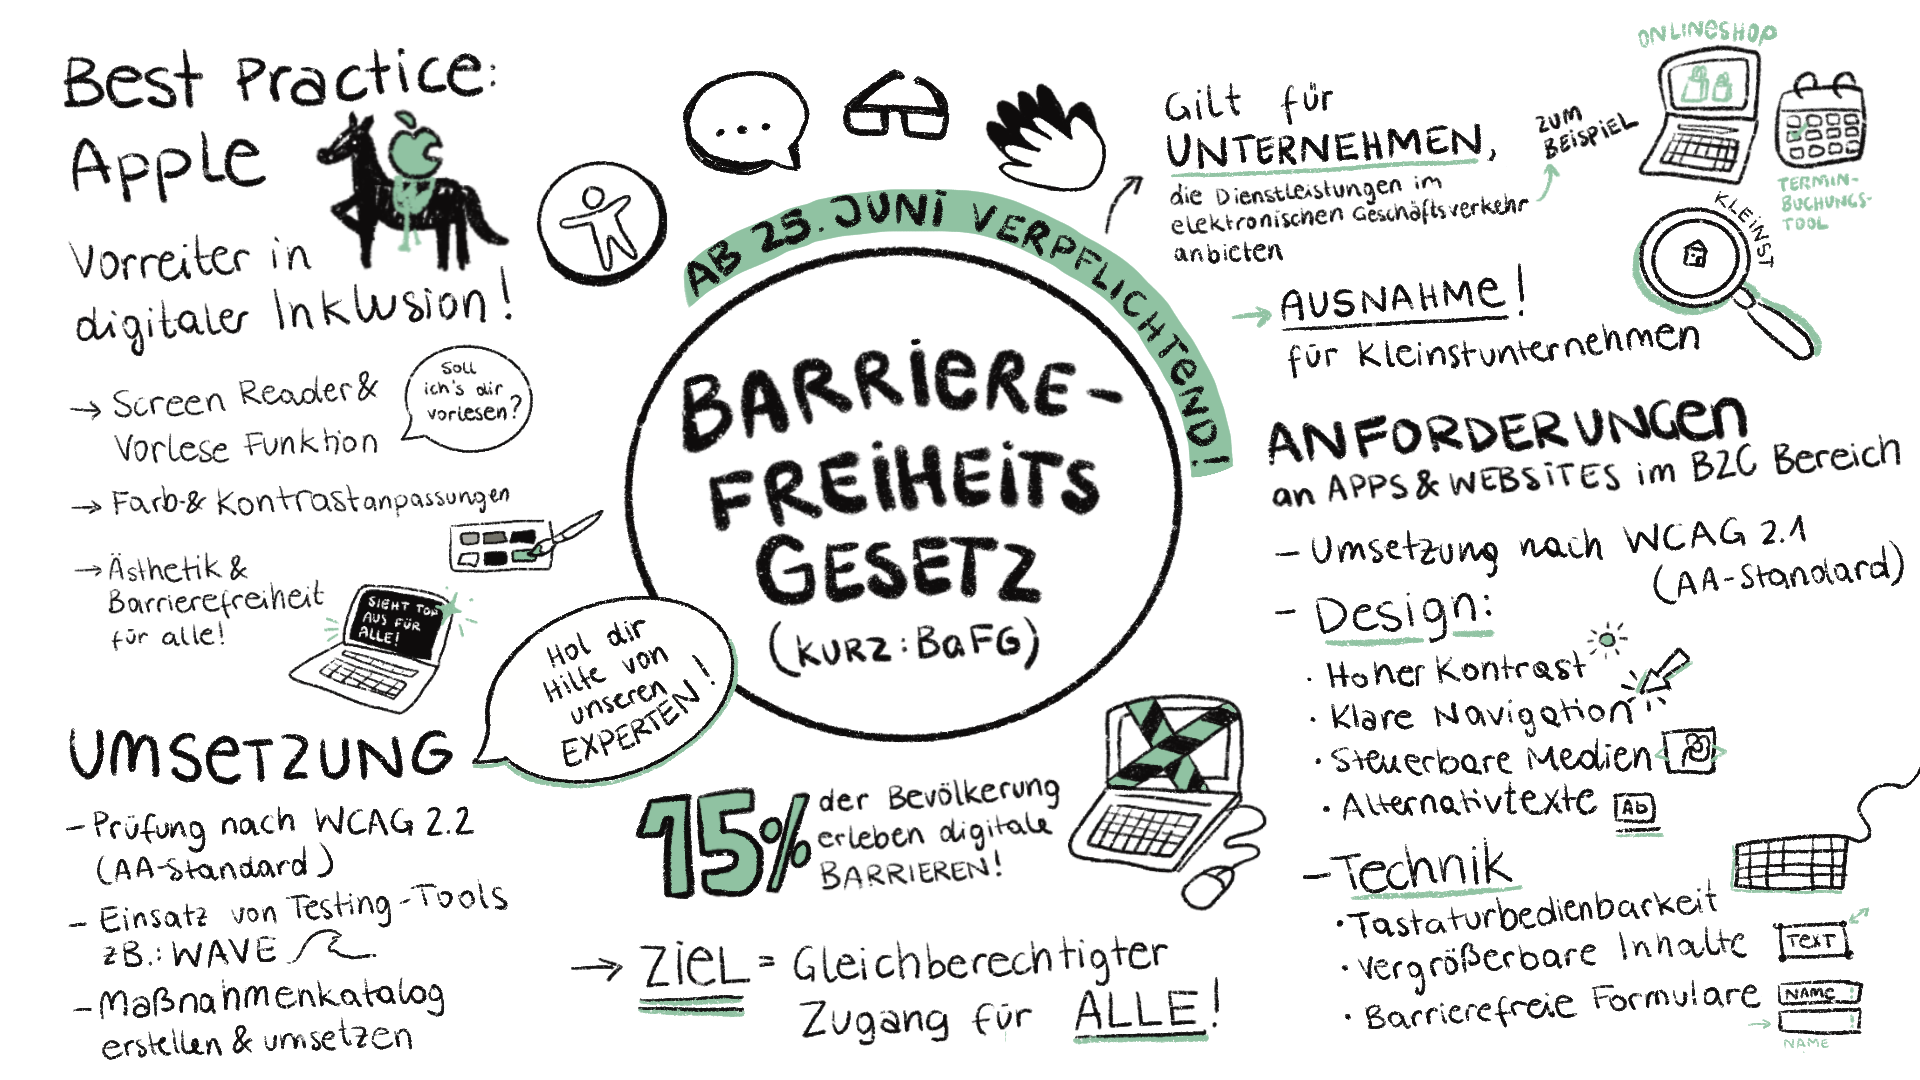 Best Practice:
Apple
Vorreiter in
digitaler Inklusion!
→ Screen Reader &
Vorlese Funktion
Soll
ich's dir
vorlesen?
→ Farb- & Kontrastanpassungen
→ Ästhetik &
Barrierefreiheit
für alle!
SIEHT TOP
AUS FÜR
ALLE!
UMSETZUNG
- Prüfung nach WCAG 2.2
(AA-Standard)
- Einsatz von Testing-Tools
zB.: WAVE
- Maßnahmenkatalog
erstellen & umsetzen
Hol dir
Hilfe von
unseren
EXPERTEN!
AB 25. JUNI VERPFLICHTEND!
BARRIERE-
FREIHEITS
GESETZ
(KURZ: BaFG)
15% der Bevölkerung
erleben digitale
BARRIEREN!
→ ZIEL = Gleichberechtigter
Zugang für ALLE!
Gilt für
UNTERNEHMEN,
die Dienstleistungen im
elektronischen Geschäftsverkehr
anbieten
ZUM
BEISPIEL
ONLINESHOP
TERMIN-
BUCHUNGS-
TOOL
→ AUSNAHME!
für Kleinstunternehmen
KLEINST
ANFORDERUNGEN
an APPS & WEBSITES im B2C Bereich
- Umsetzung nach WCAG 2.1
(AA-Standard)
- Design:
· Hoher Kontrast
· Klare Navigation
· Steuerbare Medien
· Alternativtexte
Ab
- Technik
· Tastaturbedienbarkeit
· Vergrößerbare Inhalte
TEXT
· Barrierefreie Formulare
NAME
NAME